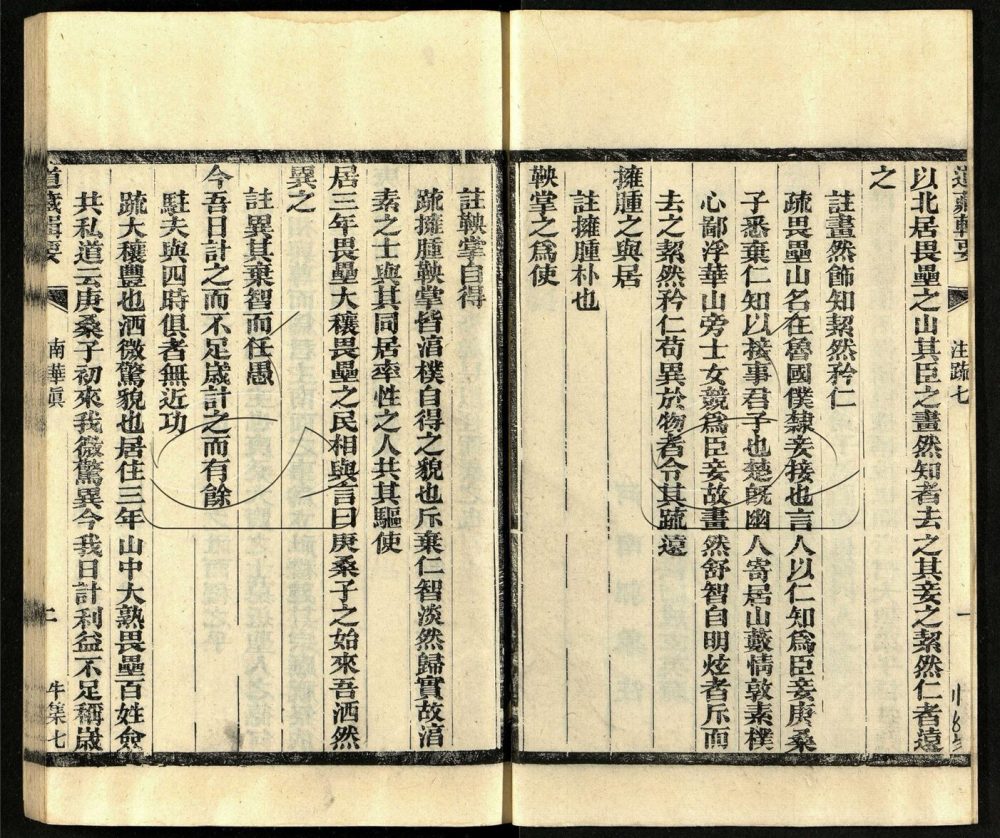 道藏輯要
注疏七
一
以北居畏壘之山其臣之畫然知者去之其妾之絜然仁者遠
之
註畫然飾知絜然矜仁
疏畏壘山名在魯國僕隸妾接也言人以仁知為臣妾庚桑
子悉棄仁知以接事君子也楚既幽人寄居山藪情敦素樸
心鄙浮華山旁士女競為臣妾故畫然舒智自明炫者斥而
去之絜然矜仁苟異於物者令其疏遠
擁腫之與居
註擁腫朴也
鞅掌之為使
註鞅掌自得
疏擁腫鞅掌皆淳樸自得之貌也斥棄仁智淡然歸實故淳
素之士與其同居率性之人共其驅使
居三年畏壘大穰畏壘之民相與言曰庚桑子之始來吾洒然
異之
註異其棄智而任愚
今吾日計之而不足歲計之而有餘
註夫與四時俱者無近功
疏大穰豐也洒微驚貌也居住三年山中大熟畏壘百姓僉
共私道云庚桑子初來我微驚異今我日計利益不足稱歲
道藏輯要
南華真
二
牛集七